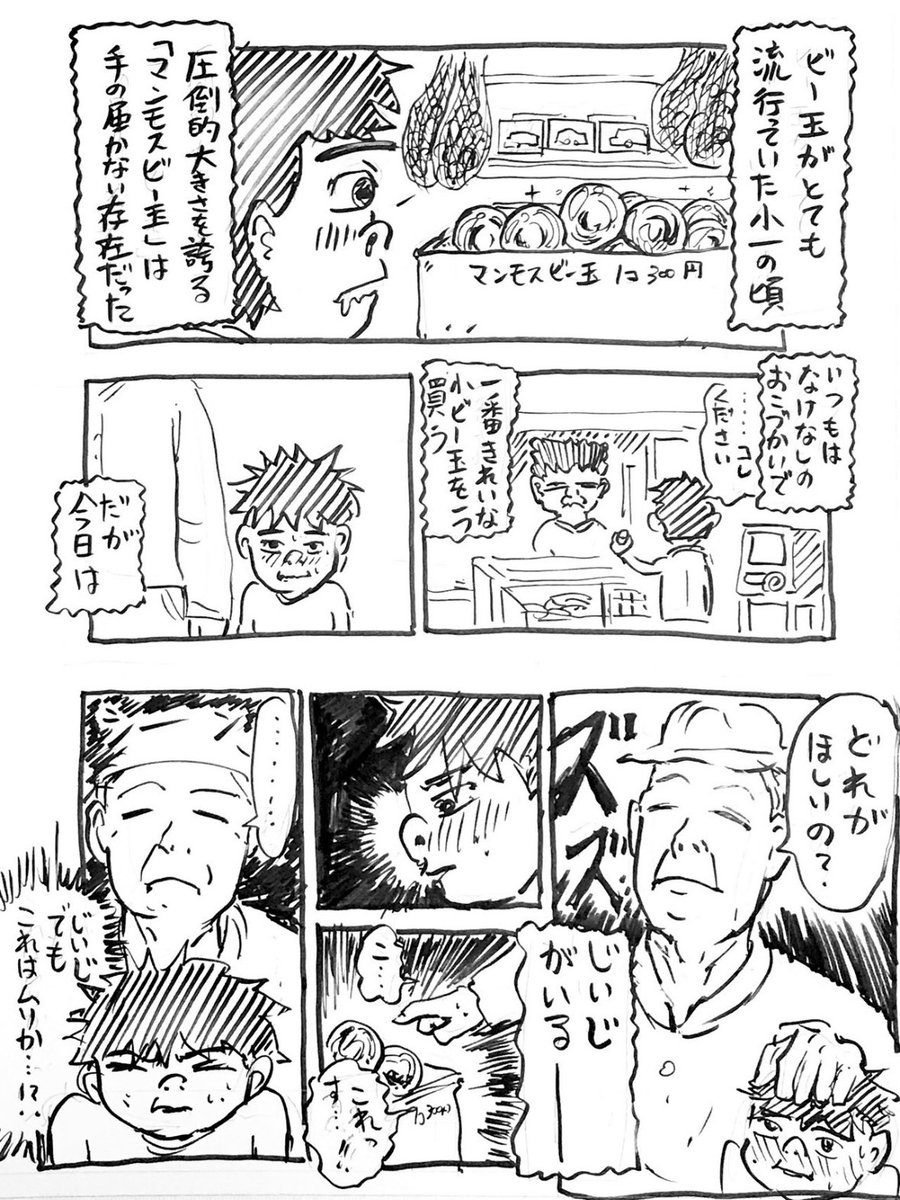 ビー玉がとても
流行っていた小一の頃
マンモスビー玉 1コ300円
圧倒的大きさを誇る
「マンモスビー玉」は
手の届かない存在だった
いつもは
なけなしの
おこづかいで
……コレ
ください
一番きれいな
小ビー玉を一つ
買う
だが
今日は
どれが
ほしいの?
ズズ
じいじ
がいる―
こ…
これっ
す…!!
1コ300円
……
じいじ
でも
これはムリか…!?